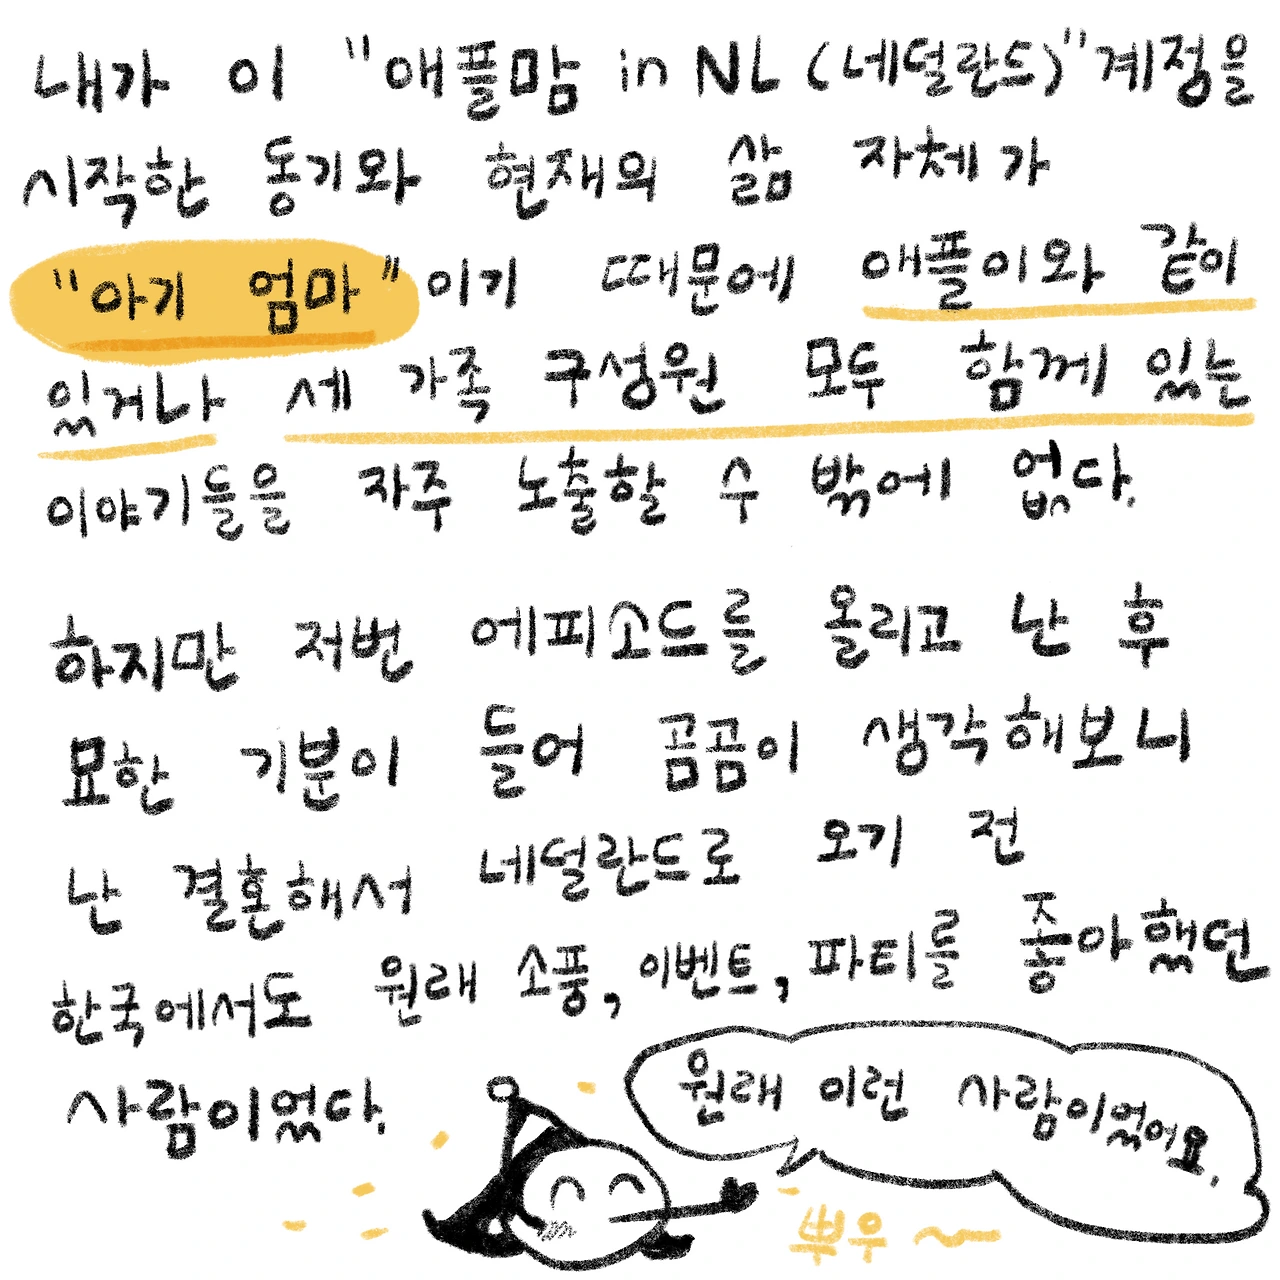 내가 이 "애플맘 in NL (네덜란드)" 계정을
시작한 동기와 현재의 삶 자체가
"아기 엄마" 이기 때문에 애플이와 같이
있거나 세 가족 구성원 모두 함께 있는
이야기들을 자주 노출할 수 밖에 없다.
하지만 저번 에피소드를 올리고 난 후
묘한 기분이 들어 곰곰이 생각해보니
난 결혼해서 네덜란드로 오기 전
한국에서도 원래 소풍, 이벤트, 파티를 좋아했던
사람이었다.
원래 이런 사람이었어요.
뿌우~